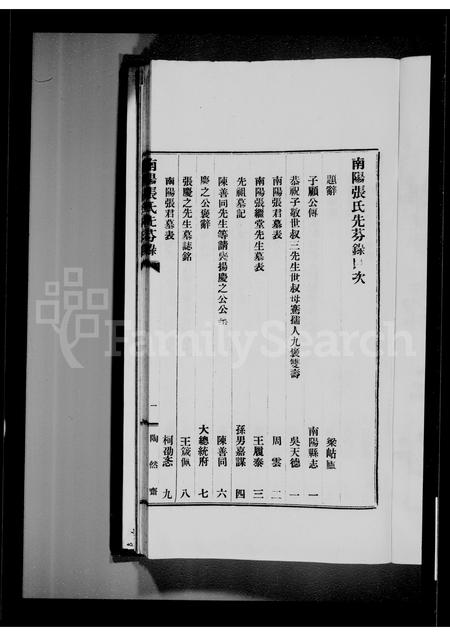 南陽張氏先芬錄目次
題辭 梁岵廬
子顧公傳 南陽縣志 一
恭祝子敬世叔三先生世叔母孺人九褒雙壽 吳天德 一
南陽張君墓表 周雲 二
南陽張繼堂先生墓表 王履泰 三
先祖墓記 孫男嘉謀 四
陳善同先生等請褒揚慶之公公 陳善同 六
慶之公褒辭 大總統府 七
張慶之先生墓誌銘 王筱佩 八
南陽張君墓表 柯劭忞 九
南陽張氏先芬錄
一 陶然齋
FamilySearch